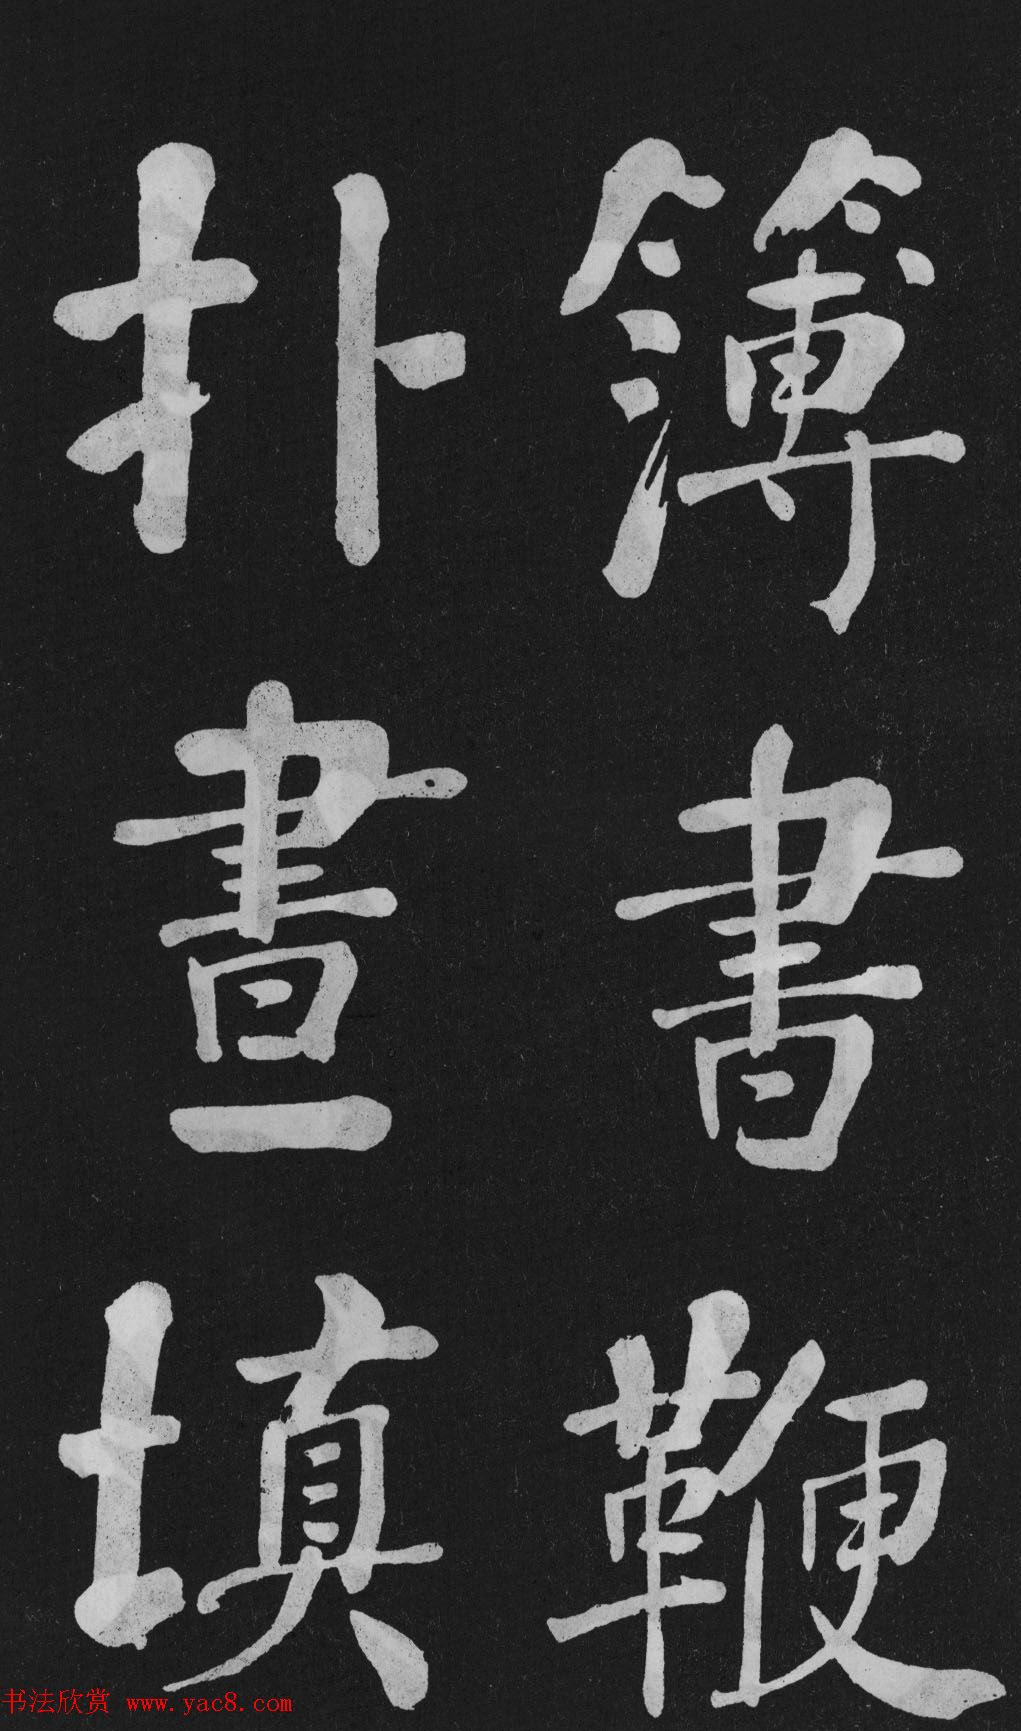 簿書鞭
扑晝填
书法欣赏 www.yac8.com